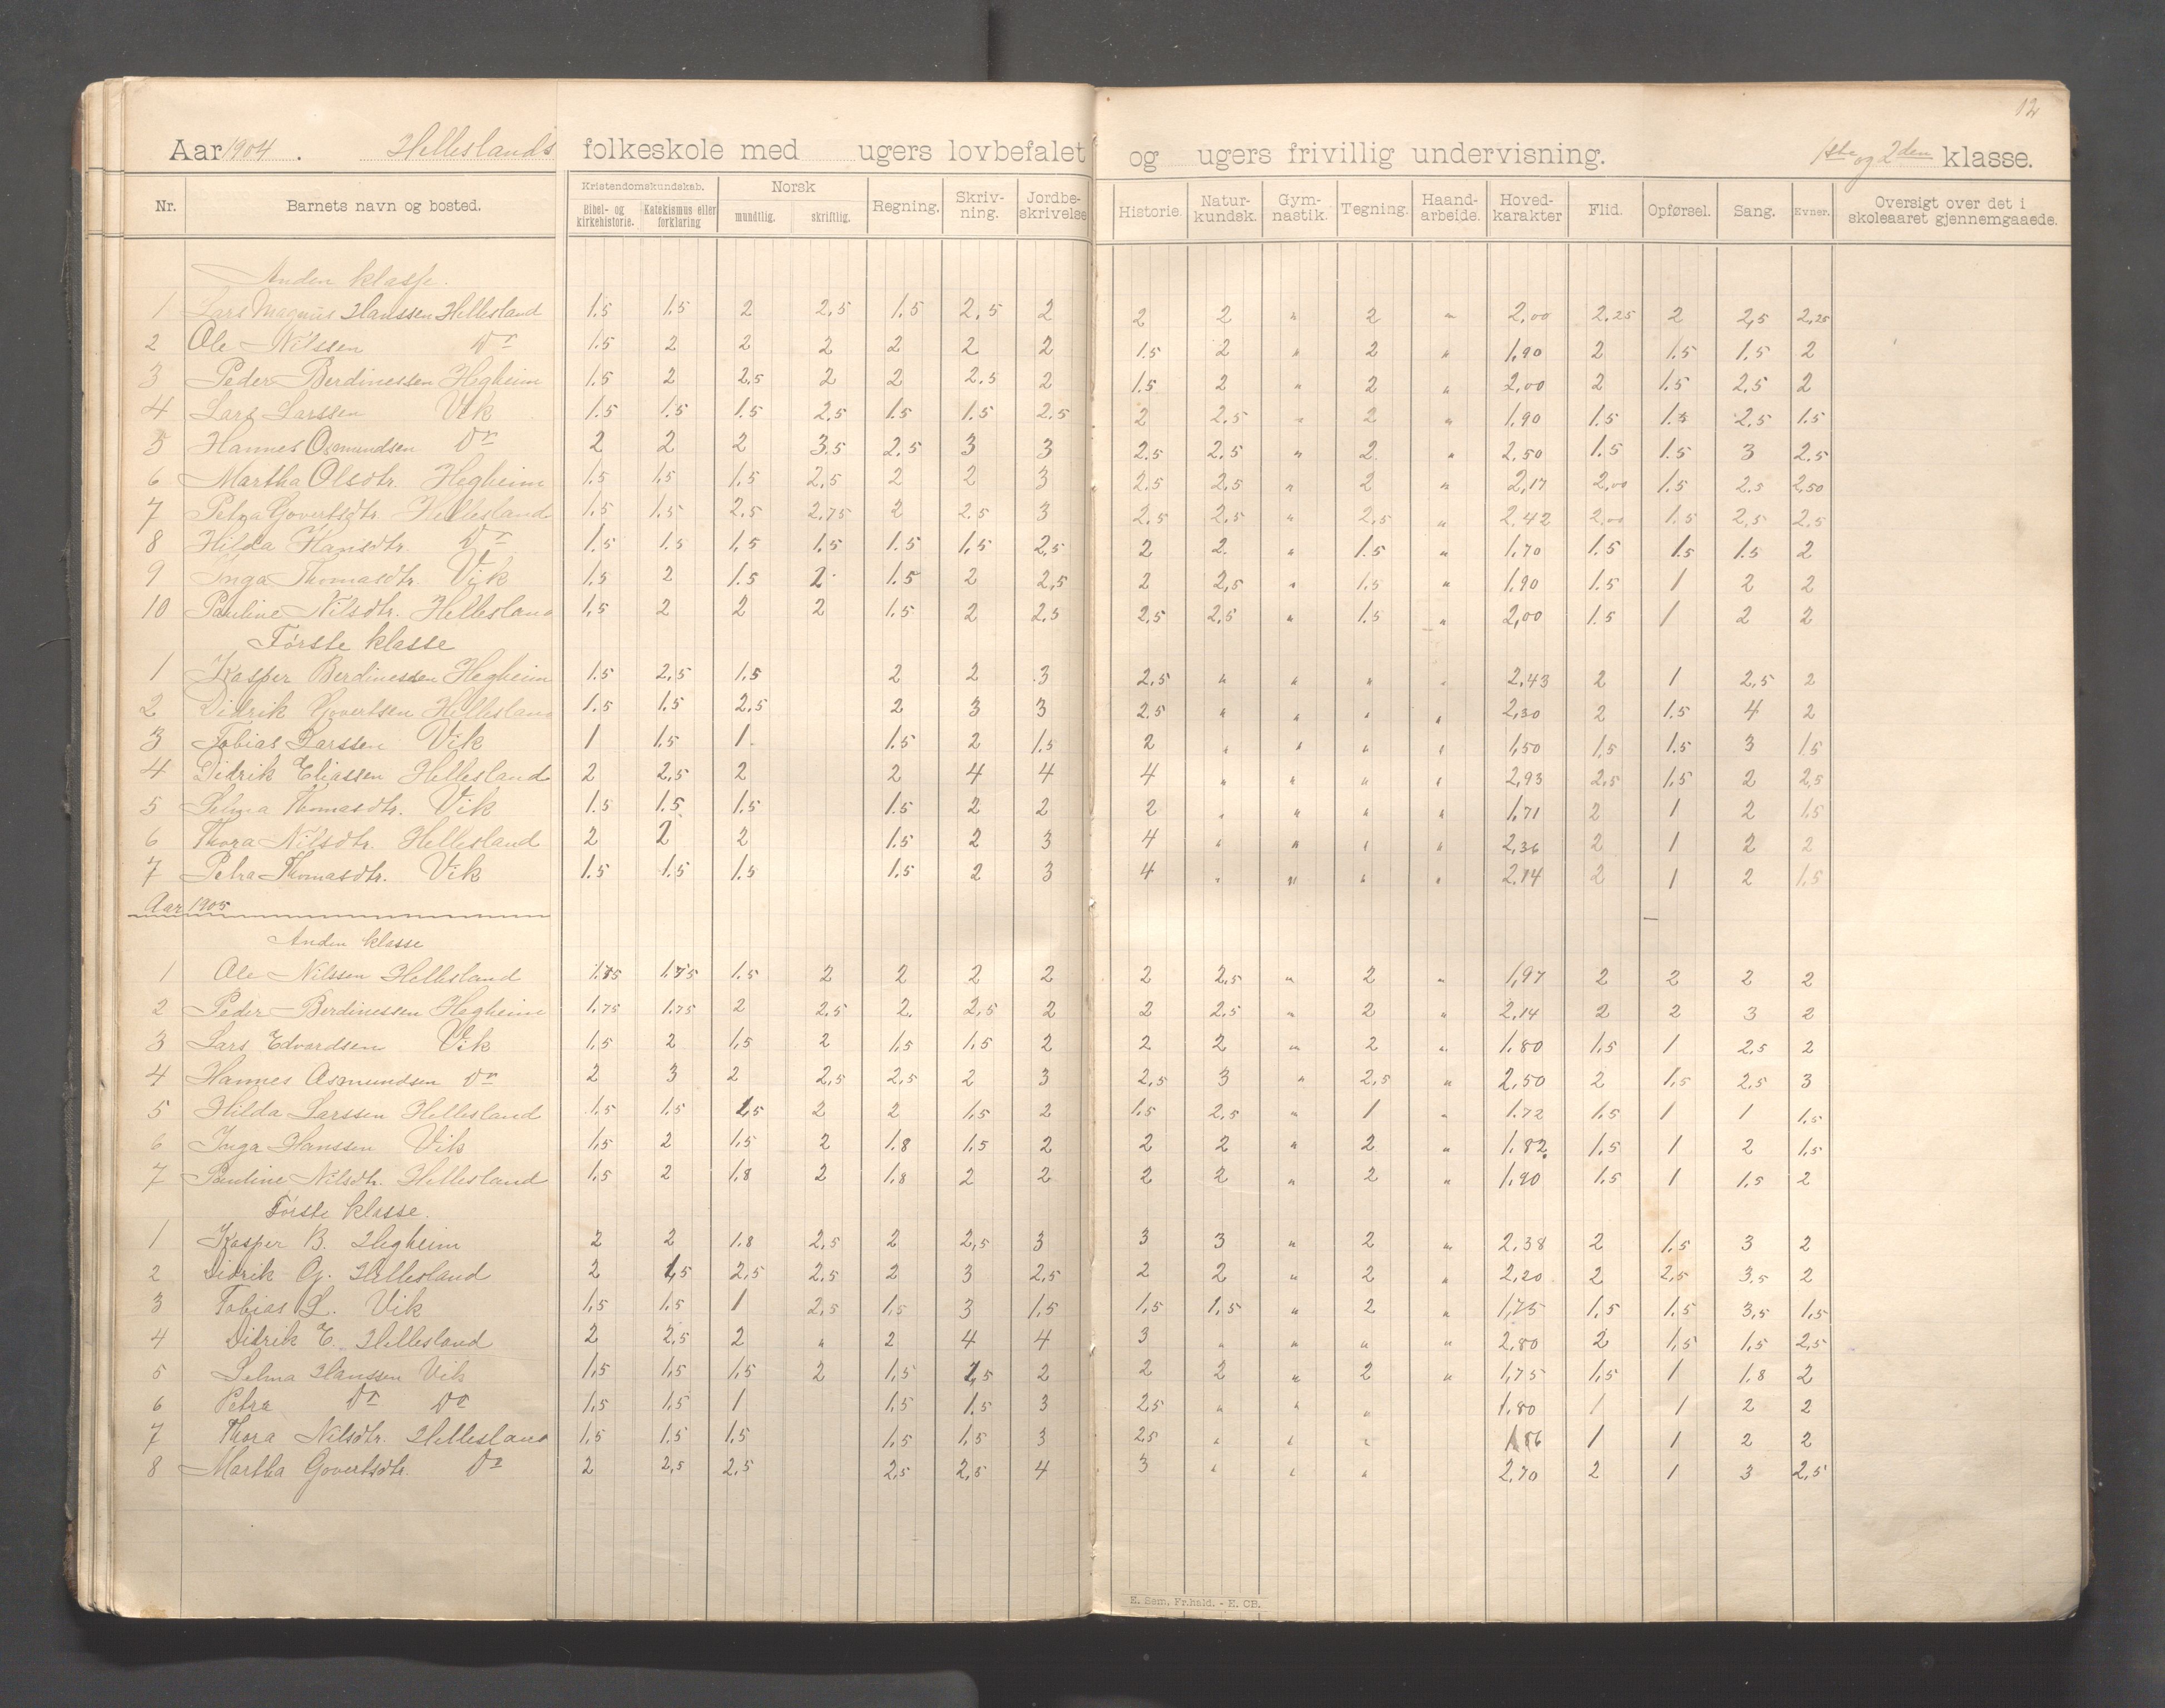 12
Aar 1904. Hellesland's folkeskole med ugers lovbefalet og ugers frivillig undervisning. 1ste og 2den klasse.
Nr. Barnets navn og bosted. Kristendomskundskab. Bibel- og kirkehistorie. Katekismus eller forklaring Norsk mundtlig. skriftlig. Regning. Skriv-ning. Jordbe-skrivelse Historie. Natur-kundsk. Gym-nastik. Tegning. Haand-arbeide. Hoved-karakter Flid. Opførsel. Sang. Evner. Oversigt over det i skoleaaret gjennemgaaede.
Anden klasse.
1 Lars Magnus Hanssen Hellesland 1.5 1.5 2 2,5 1.5 2,5 2 2 2 " 2 " 2,00 2,25 2 2,5 2,25
2 Ole Nilssen Do 1.5 2 2 2 2 2 2 1.5 2 " 2 " 1,90 2 1.5 1.5 2
3 Peder Berdinessen Hegheim 1.5 2 2,5 2 2 2.5 2 1.5 2 " 2 " 2,00 2 1.5 2,5 2
4 Lars Larssen Vik 1.5 1.5 1.5 2,5 1.5 1.5 2,5 2 2,5 " 2 " 1,90 1.5 1.5 2.5 1.5
5 Hannes Osmundsen Do 2 2 2 3.5 2,5 3 3 2.5 2,5 " 2 " 2,50 1.5 1.5 3 2.5
6 Martha Olsdtr. Hegheim 1.5 1.5 1.5 2,5 2 2 3 2.5 2,5 " 2 " 2,17 2,00 1.5 2.5 2,50
7 Petra Govertsdtr. Hellesland 1.5 1.5 2.5 2.75 2 2.5 3 2.5 2,5 " 2,5 " 2,42 2,00 1.5 2,5 2,5
8 Hilda Hansdtr. Do 1.5 1.5 1,5 1,5 1.5 1,5 2,5 2 2. " 1.5 " 1,70 1.5 1.5 1.5 2
9 Inga Thomasdtr. Vik 1.5 2 1.5 2 1.5 2 2,5 2 2,5 " 1.5 " 1,90 1.5 1 2 2
10 Pauline Nilsdtr. Hellesland 1,5 2 2 2 1.5 2 2.5 2.5 2,5 " 1.5 " 2,00 1.5 1 2 2
Første klasse
1 Kasper Berdinessen Hegheim 1.5 2,5 1.5 2 2 3 2,5 " " " " 2,43 2 1 2,5 2
2 Didrik Govertsen Hellesland 1.5 1.5 2.5 2 3 3 2.5 " " " " 2,30 2 1.5 4 2
3 Tobias Larssen Vik 1 1.5 1. 1.5 2 1.5 2 " " " " 1,50 1,5 1.5 3 1.5
4 Didrik Eliassen Hellesland 2 2,5 2 2 4 4 4 " " " " 2,93 2,5 1,5 2 2,5
5 Selma Thomasdtr. Vik 1.5 1.5 1.5 1.5 2 2 2 " " " " 1,71 2 1 2 1.5
6 Thora Nilsdtr. Hellesland 2 2 2 1.5 2 3 4 " " " " 2,36 2 1 2 2
7 Petra Thomasdtr. Vik 1.5 1.5 1.5 1.5 2 3 4 " " " " 2.14 2 1 2 1,5
Aar 1905
Anden klasse
1 Ole Nilssen Hellesland 1.75 1.75 1.5 2 2 2 2 2 2,5 " 2 " 1,97 2 2 2 2
2 Peder Berdinessen Hegheim 1,75 1.75 2 2.5 2. 2,5 2 2 2.5 " 2 " 2,14 2 2 3 2
3 Lars Edvardsen Vik 1,5 2 1,5 2 1,5 1.5 2 2 2 " 2 " 1.80 1,5 1 2.5 2
4 Hannes Osmundsen Do 2 3 2 2,5 2,5 2 3 2,5 3 " 2,5 " 2,50 2 1,5 2,5 3
5 Hilda Larssen Hellesland 1.5 1,5 1,5 2 2 1,5 2 1.5 2,5 " 1 " 1.72 1,5 1 1 1,5
6 Inga Hanssen Vik 1,5 2 1.5 2 1.8 1,5 2 2 2 " 2 " 1.82 1,5 1 2 1,5
7 Pauline Nilsdtr. Hellesland 1,5 2 1,8 2 1,8 2 2 2 2 " 2 " 1,90 1.5 1 1,5 2
Første klasse.
1 Kasper B. Hegheim 2 2 1.8 2,5 2 2,5 3 3 3 " 2 " 2,38 2 1,5 3 2
2 Didrik G. Hellesland 2 1,5 2,5 2.5 2 3 2,5 2 2 " 2 " 2,20 2 2,5 3,5 2
3 Tobias L. Vik 1,5 1,5 1 2,5 1,5 3 1,5 1,5 1,5 " 2 " 1,75 1,5 1,5 3,5 1,5
4 Didrik E. Hellesland 2 2,5 2 " 2 4 4 3 " " " " 2,80 2 1,5 1,5 2,5
5 Selma Hanssen Vik 1,5 1,5 1,5 2 1,5 1,5 2 2 2 " 2 " 1,75 1,5 1 1,8 2
6 Petra Do Do 1,5 1,5 1 1,5 1.5 3 2,5 " " " 1.80 1 1 2 2
7 Thora Nilsdtr. Hellesland 1.5 1.5 1,5 1,5 1,5 3 2.5 " " " 1.86 1 1 2 2
8 Martha Govertsdtr. Do 2 2,5 2,5 2,5 2,5 4 3 " " " 2,70 2 1 3 2,5
E. Sem, Fr.hald. - E. CB.